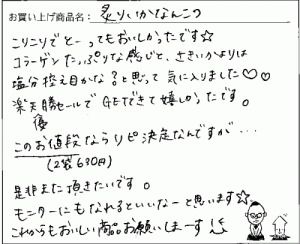 お買い上げ商品名: 炙りいかなんこつ
こりこりでとーってもおいしかったです☆
コラーゲンたっぷりな感じと、さきいかよりは
塩分控え目かな?と思って気に入りました♡♡
楽天優勝セールでGETできて嬉しかったです。
このお値段ならリピ決定なんですが…
(2袋630円)
是非また頂きたいです。
モニターにもなれるといいなーと思います☆
これからもおいしい商品お願いしまーす